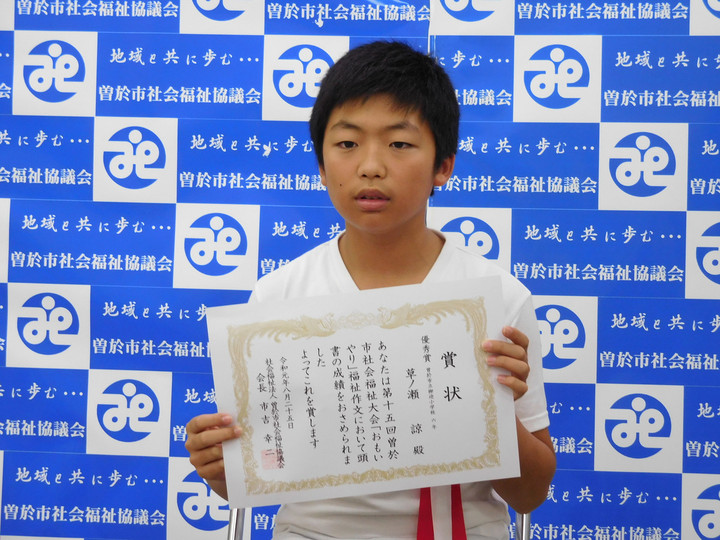 地域と共に歩む･･･
曽於市社会福祉協議会
賞状
優秀賞
草ノ瀬 諒 殿
あなたは第十五回曽於
市社会福祉大会「おもい
やり」福祉作文において頭
書の成績をおさめられま
した
よってこれを賞します
令和元年八月二十五日
社会福祉法人 曽於市社会福祉協議会
会長 市吉 幸二